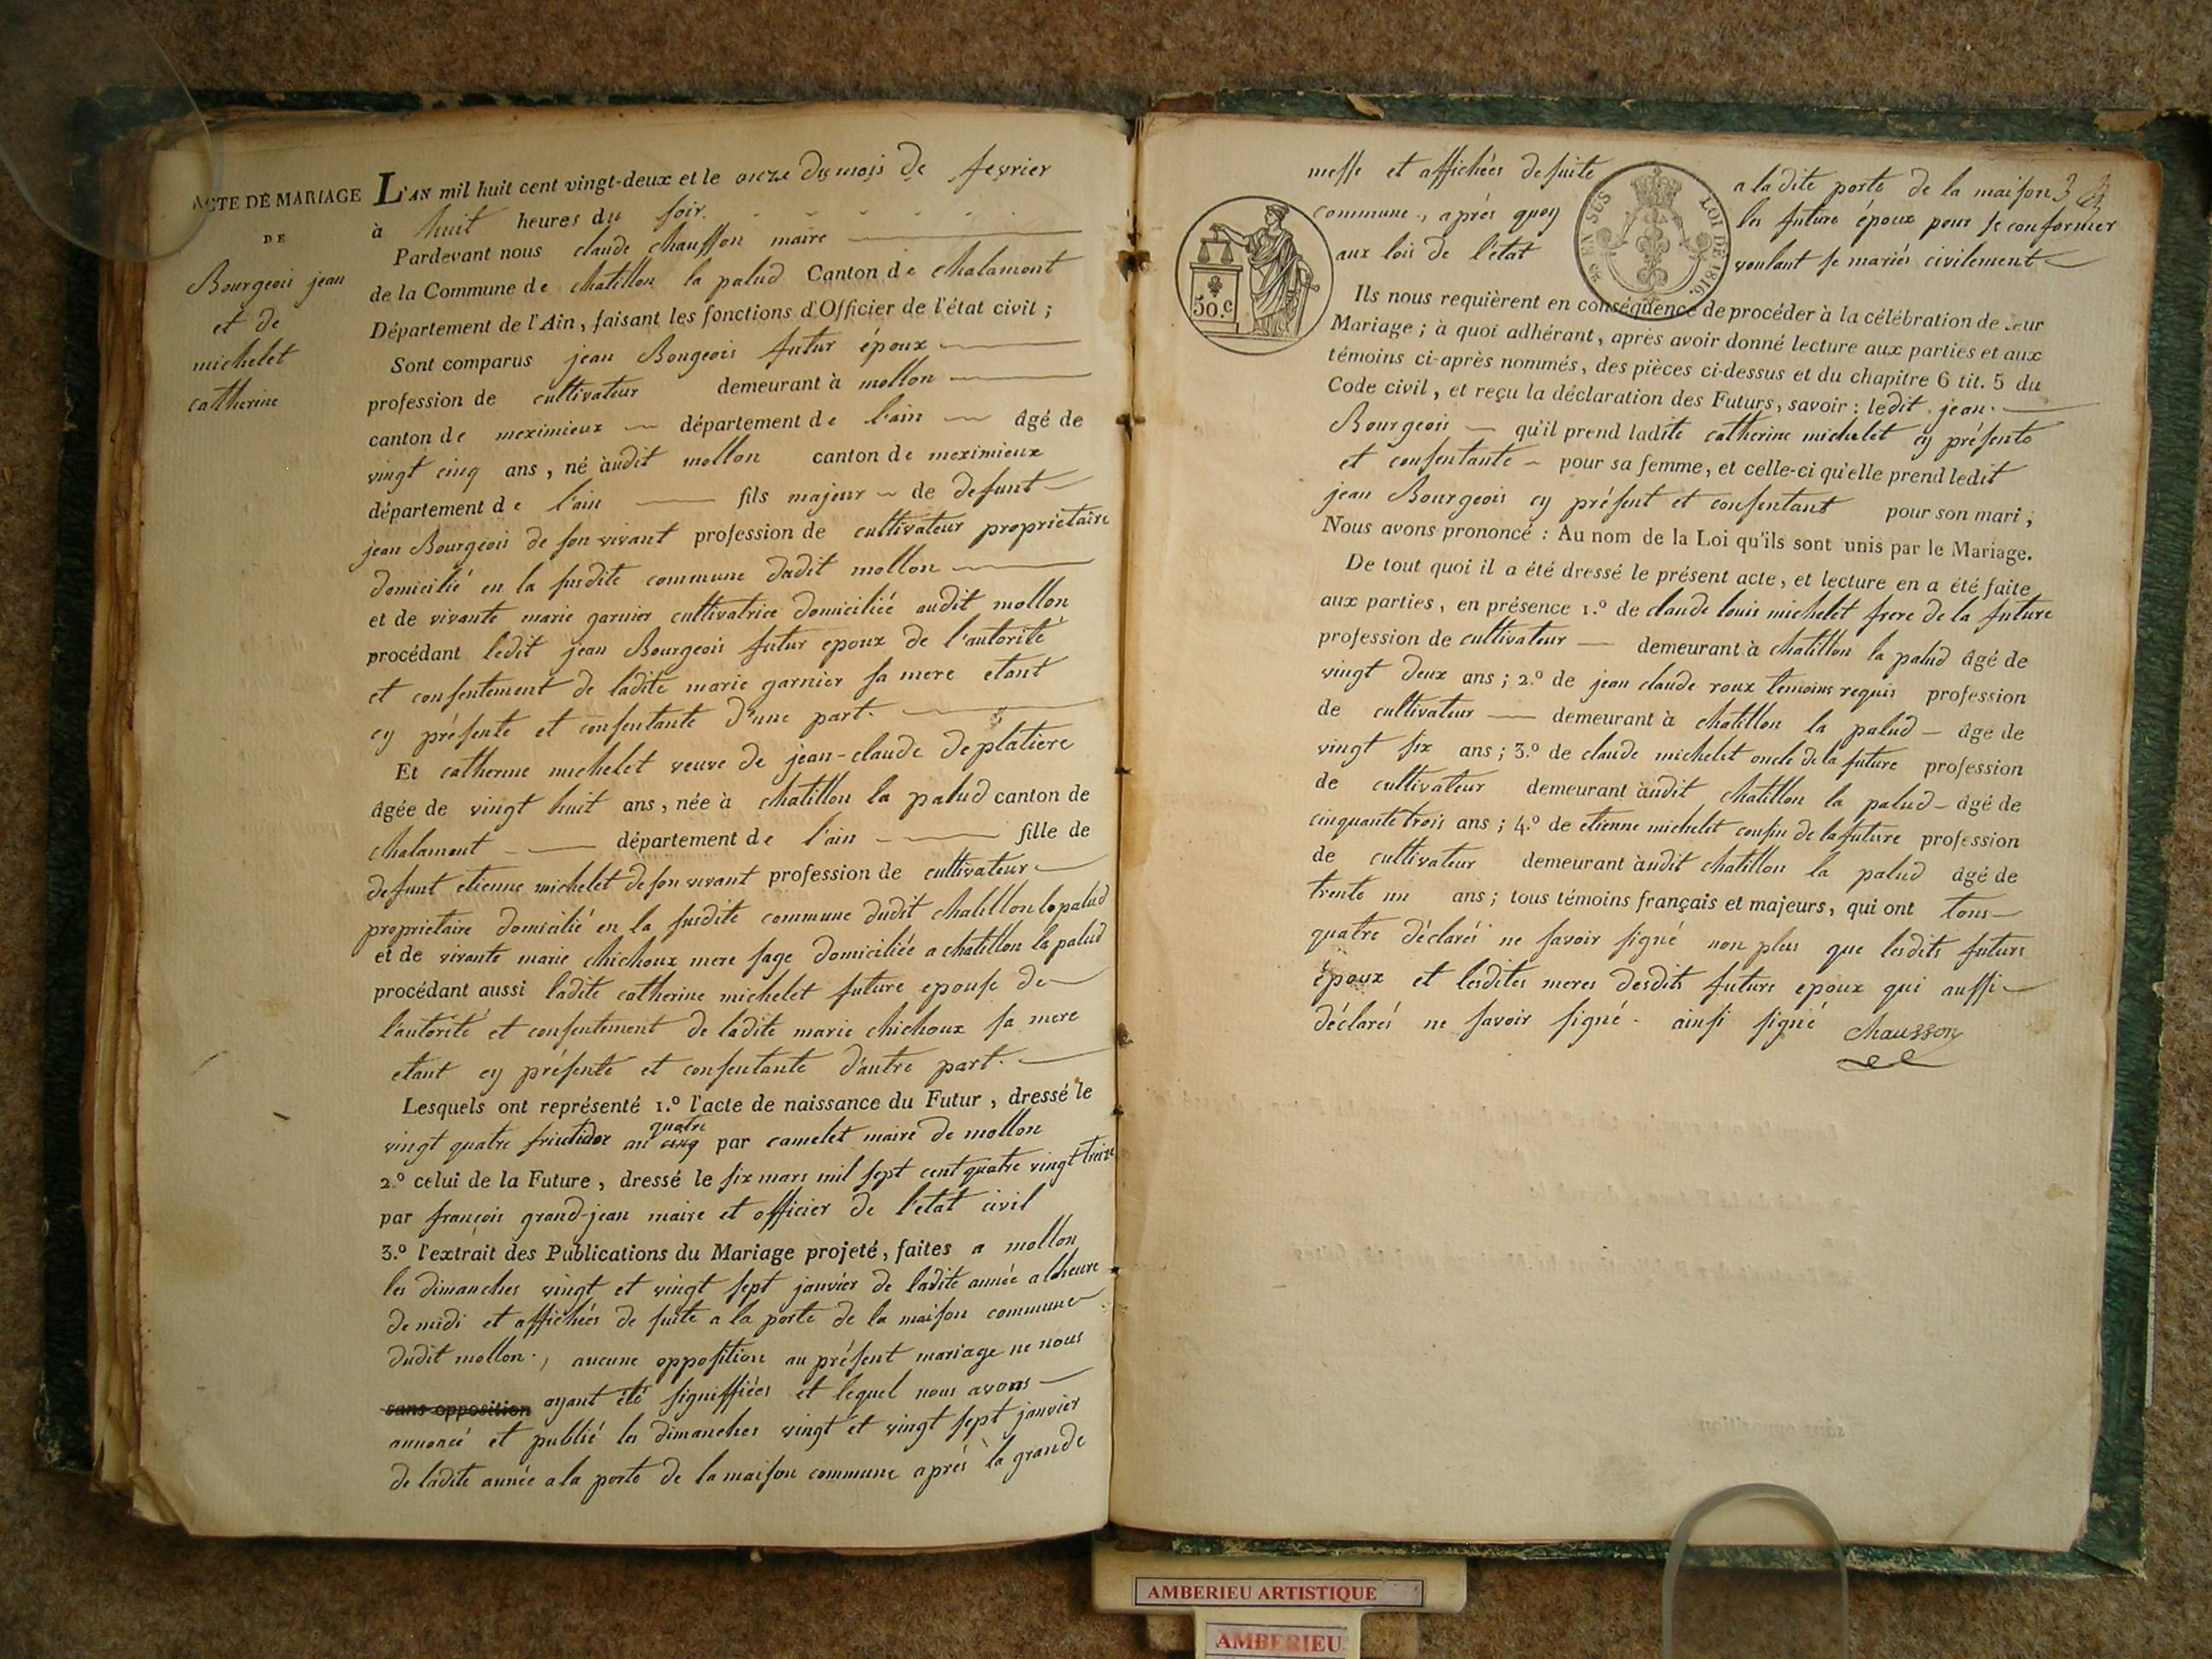 ACTE DE MARIAGE
DE
Bourgeois jean
et de
michelet
catherine
L'AN mil huit cent vingt-deux et le onze du mois de fevrier
à huit heures du soir.
Pardevant nous claude chausson maire
de la Commune de chatillon la palud Canton de chalamont
Département de l'Ain, faisant les fonctions d'Officier de l'état civil ;
Sont comparus jean Bougeois futur époux
profession de cultivateur demeurant à mollon
canton de meximieux département de l'ain âgé de
vingt cinq ans, né àudit mollon canton de meximieux
département de l'ain fils majeur de defunt
jean Bourgeois de son vivant profession de cultivateur propriétaire
domicilié en la susdite commune dudit mollon
et de vivante marie garnier cultivatrice domiciliée audit mollon
procédant ledit jean Bourgeois futur epoux de l'autorité
et consentement de ladite marie garnier sa mere etant
cy présente et consentante d'une part.
Et catherine michelet veuve de jean-claude deplatiere
âgée de vingt huit ans, née à chatillon la palud canton de
chalamont département de l'ain fille de
defunt etienne michelet de son vivant profession de cultivateur
proprietaire domicilié en la susdite commune dudit chatillon la palud
et de vivante marie chichoux mere sage domiciliée a chatillon la palud
procédant aussi ladite catherine michelet future epouse de
l'autorité et consentement de ladite marie chichoux sa mere
etant cy présente et consentante d'autre part.
Lesquels ont représenté 1.º l'acte de naissance du Futur, dressé le
vingt quatre fructidor an cinq quatre par camelet maire de mollon
2.º celui de la Future, dressé le six mars mil sept cent quatre vingt treize
par françois grand-jean maire et officier de l'etat civil
3.º l'extrait des Publications du Mariage projeté, faites a mollon
les dimanches vingt et vingt sept janvier de ladite année a l'heure
de midi et affichées de suite a la porte de la maison commune
dudit mollon., aucune opposition au présent mariage ne nous
sans opposition ayant été signiffiées et lequel nous avons
annoncé et publié les dimanches vingt et vingt sept janvier
de ladite année a la porte de la maison commune après la grande
messe et affichées de suite a la dite porte de la maison 3
commune., après quoy les future époux pour se conformer
aux lois de l'état voulant se mariés civilement
50 c
EN SUS
LOI DE 1816.
Ils nous requièrent en conséquence de procéder à la célébration de leur
Mariage ; à quoi adhérant, après avoir donné lecture aux parties et aux
témoins ci-après nommés, des pièces ci-dessus et du chapitre 6 tit. 5 du
Code civil, et reçu la déclaration des Futurs, savoir : ledit jean.
Bourgeois qu'il prend ladite catherine michelet cy présente
et consentante pour sa femme, et celle-ci qu'elle prend ledit
jean Bourgeois cy présent et consentant pour son mari ;
Nous avons prononcé : Au nom de la Loi qu'ils sont unis par le Mariage.
De tout quoi il a été dressé le présent acte, et lecture en a été faite
aux parties, en présence 1.º de claude louis michelet frere de la future
profession de cultivateur demeurant à chatillon la palud âgé de
vingt deux ans ; 2.º de jean claude roux temoins requis profession
de cultivateur demeurant à chatillon la palud âge de
vingt six ans ; 3.º de claude michelet oncle de la future profession
de cultivateur demeurant àudit chatillon la palud âgé de
cinquante trois ans ; 4.º de etienne michelet cousin de la future profession
de cultivateur demeurant àudit chatillon la palud âgé de
trente un ans ; tous témoins français et majeurs, qui ont tous
quatre déclarés ne savoir signé non plus que lesdits futurs
époux et lesdites meres desdits futurs epoux qui aussi
déclarés ne savoir signé. ainsi signé chausson
AMBERIEU ARTISTIQUE
AMBERIEU